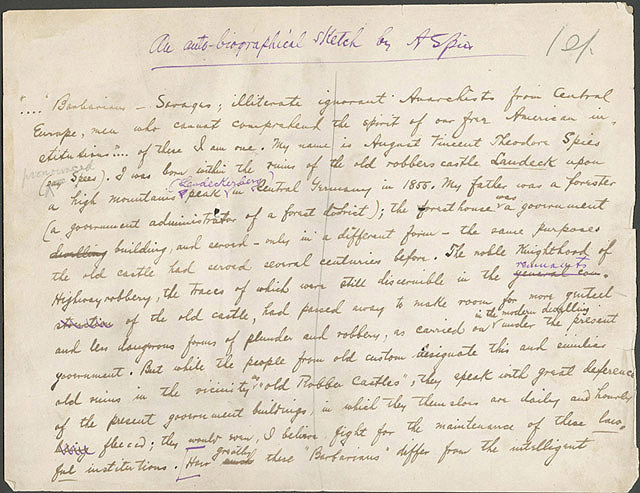 An auto-biographical sketch by A Spies
"...." Barbarians – Savages; illiterate ignorant Anarchists from Central
Europe, men who cannot comprehend the spirit of our free American in-
stitutions".... of these I am one. My name is August Vincent Theodore Spies
pronounced
( Spees). I was born within the ruins of the old robbers castle Landeck upon
(Landeckerberg)
a high mountains peak in Central Germany in 1855. My father was a forester
was
(a government administrator of a forest district); the foresthouse a government
dwelling building, and served – only in a different form – the same purposes
the old castle had served several centuries before. The noble Knighthood of
remnants
Highway robbery, the traces of which were still discernible in the general con-
struction of the old castle, had passed away to make room for more genteel
in the modern dwelling
and less dangerous forms of plunder and robbery, as carried on under the present
government. But while the people from old custom designate this and similar
old ruins in the vicinity "old Robber Castles", they speak with great deference
of the present government buildings, in which they themselves are daily and hourly
fleeced; they would even, I believe, fight for the maintenance of these law-
greatly
ful institutions. How much these "Barbarians" differ from the intelligent